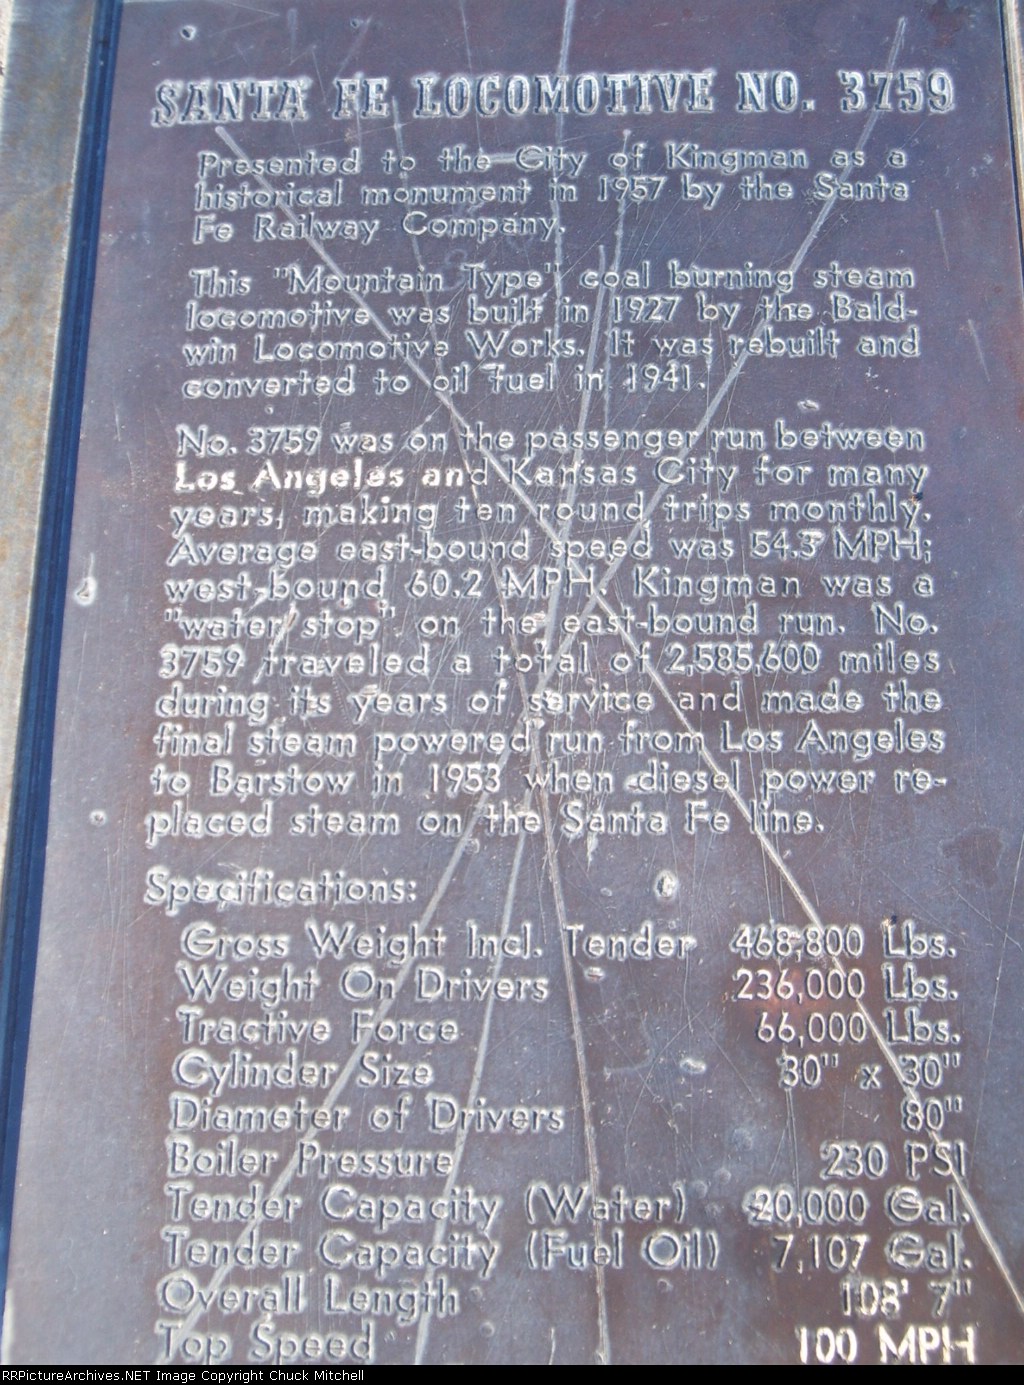 SANTA FE LOCOMOTIVE NO. 3759
Presented to the City of Kingman as a
historical monument in 1957 by the Santa
Fe Railway Company.
This "Mountain Type" coal burning steam
locomotive was built in 1927 by the Bald-
win Locomotive Works. It was rebuilt and
converted to oil fuel in 1941.
No. 3759 was on the passenger run between
Los Angeles and Kansas City for many
years, making ten round trips monthly.
Average east-bound speed was 54.3 MPH;
west-bound 60.2 MPH. Kingman was a
"water stop" on the east-bound run. No.
3759 traveled a total of 2,585,600 miles
during its years of service and made the
final steam powered run from Los Angeles
to Barstow in 1953 when diesel power re-
placed steam on the Santa Fe line.
Specifications:
Gross Weight Incl. Tender 468,800 Lbs.
Weight On Drivers 236,000 Lbs.
Tractive Force 66,000 Lbs.
Cylinder Size 30" x 30"
Diameter of Drivers 80"
Boiler Pressure 230 PSI
Tender Capacity (Water) 20,000 Gal.
Tender Capacity (Fuel Oil) 7,107 Gal.
Overall Length 108' 7"
Top Speed 100 MPH
RRPictureArchives.NET Image Copyright Chuck Mitchell